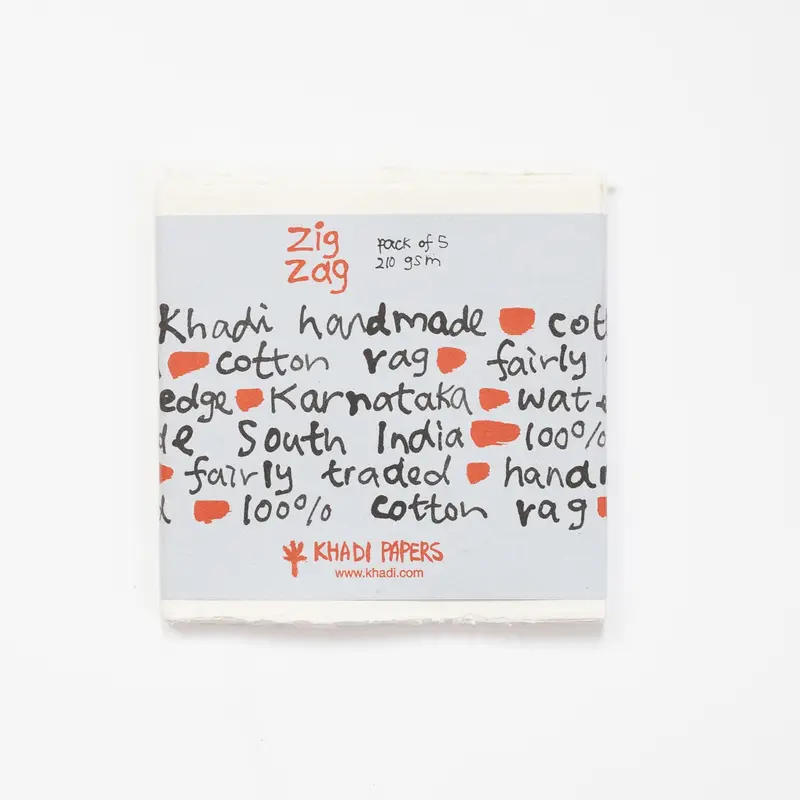 Zig
Zag
pack of 5
210 gsm
Khadi handmade cot
cotton rag fairly
edge Karnataka wat
South India 100%
fairly traded hand
100% cotton rag
KHADI PAPERS
www.khadi.com